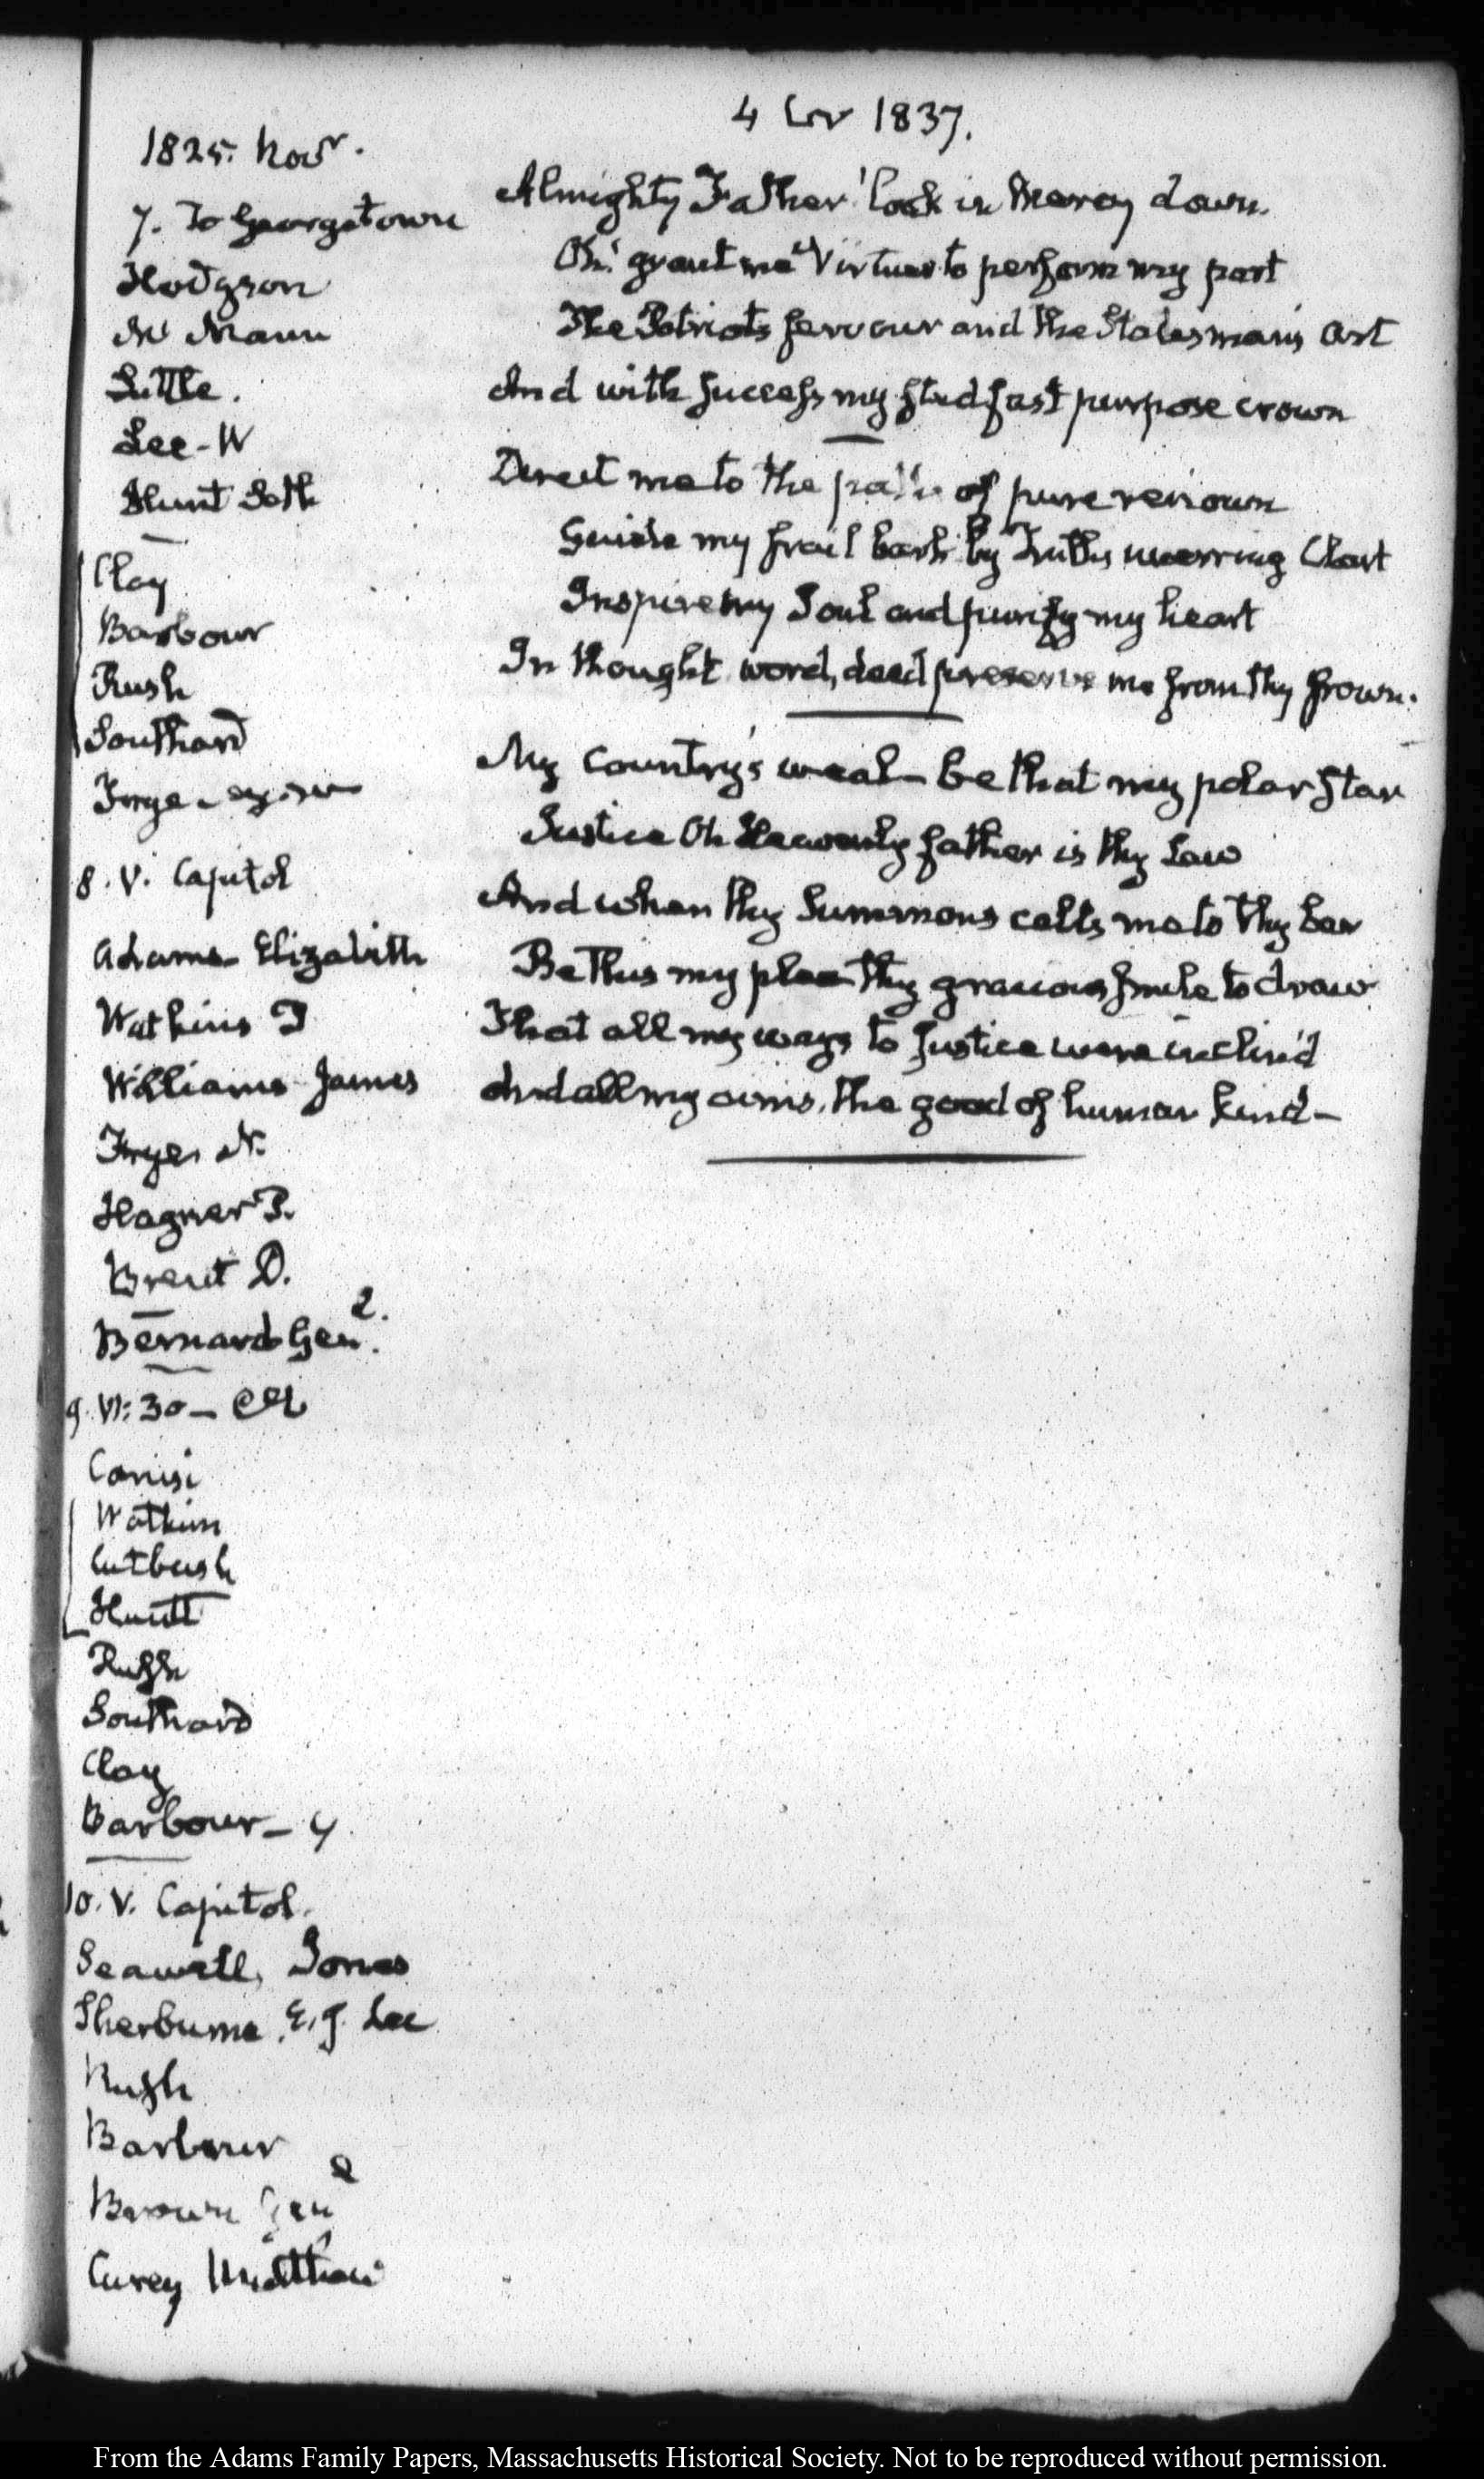 1825. Novr.
7. To Georgetown
Hodgson
Mann
Little.
Lee - W
Hunt Seth
Clay
Barbour
Rush
Southard
8. V. Capitol
Adams Elizabeth
Watkins T
Williams James
Frye. N.
Hagner P.
Brent D.
Bernard Genl. 2.
9. VI: 30 -
Watkins
Cutbush
Huntt
Rush
Southard
Clay
Barbour - 4
10. V. Capitol.
Seawell, Jones
Sherburne. E. J. Lee
Rush
Barbour
Brown Genl
Carey Matthew
4 1837.
Almighty Father! look in Mercy down.
Oh! grant me Virtue to perform my part
The Patriots fervour and the Statesman's Art
And with success my stedfast purpose crown
Direct me to the paths of pure renown
Guide my frail bark by Truth's unerring Chart
Inspire my Soul and purify my heart
In thought word, deed preserve me from thy frown.
My Country's weal - be that my polar Star
Justice Oh Heavenly father is thy Law
And when thy Summons calls me to thy bar
Be this my plea thy gracious smile to draw
That all my ways to Justice were inclin'd
And all my aims, the good of human kind -
From the Adams Family Papers, Massachusetts Historical Society. Not to be reproduced without permission.